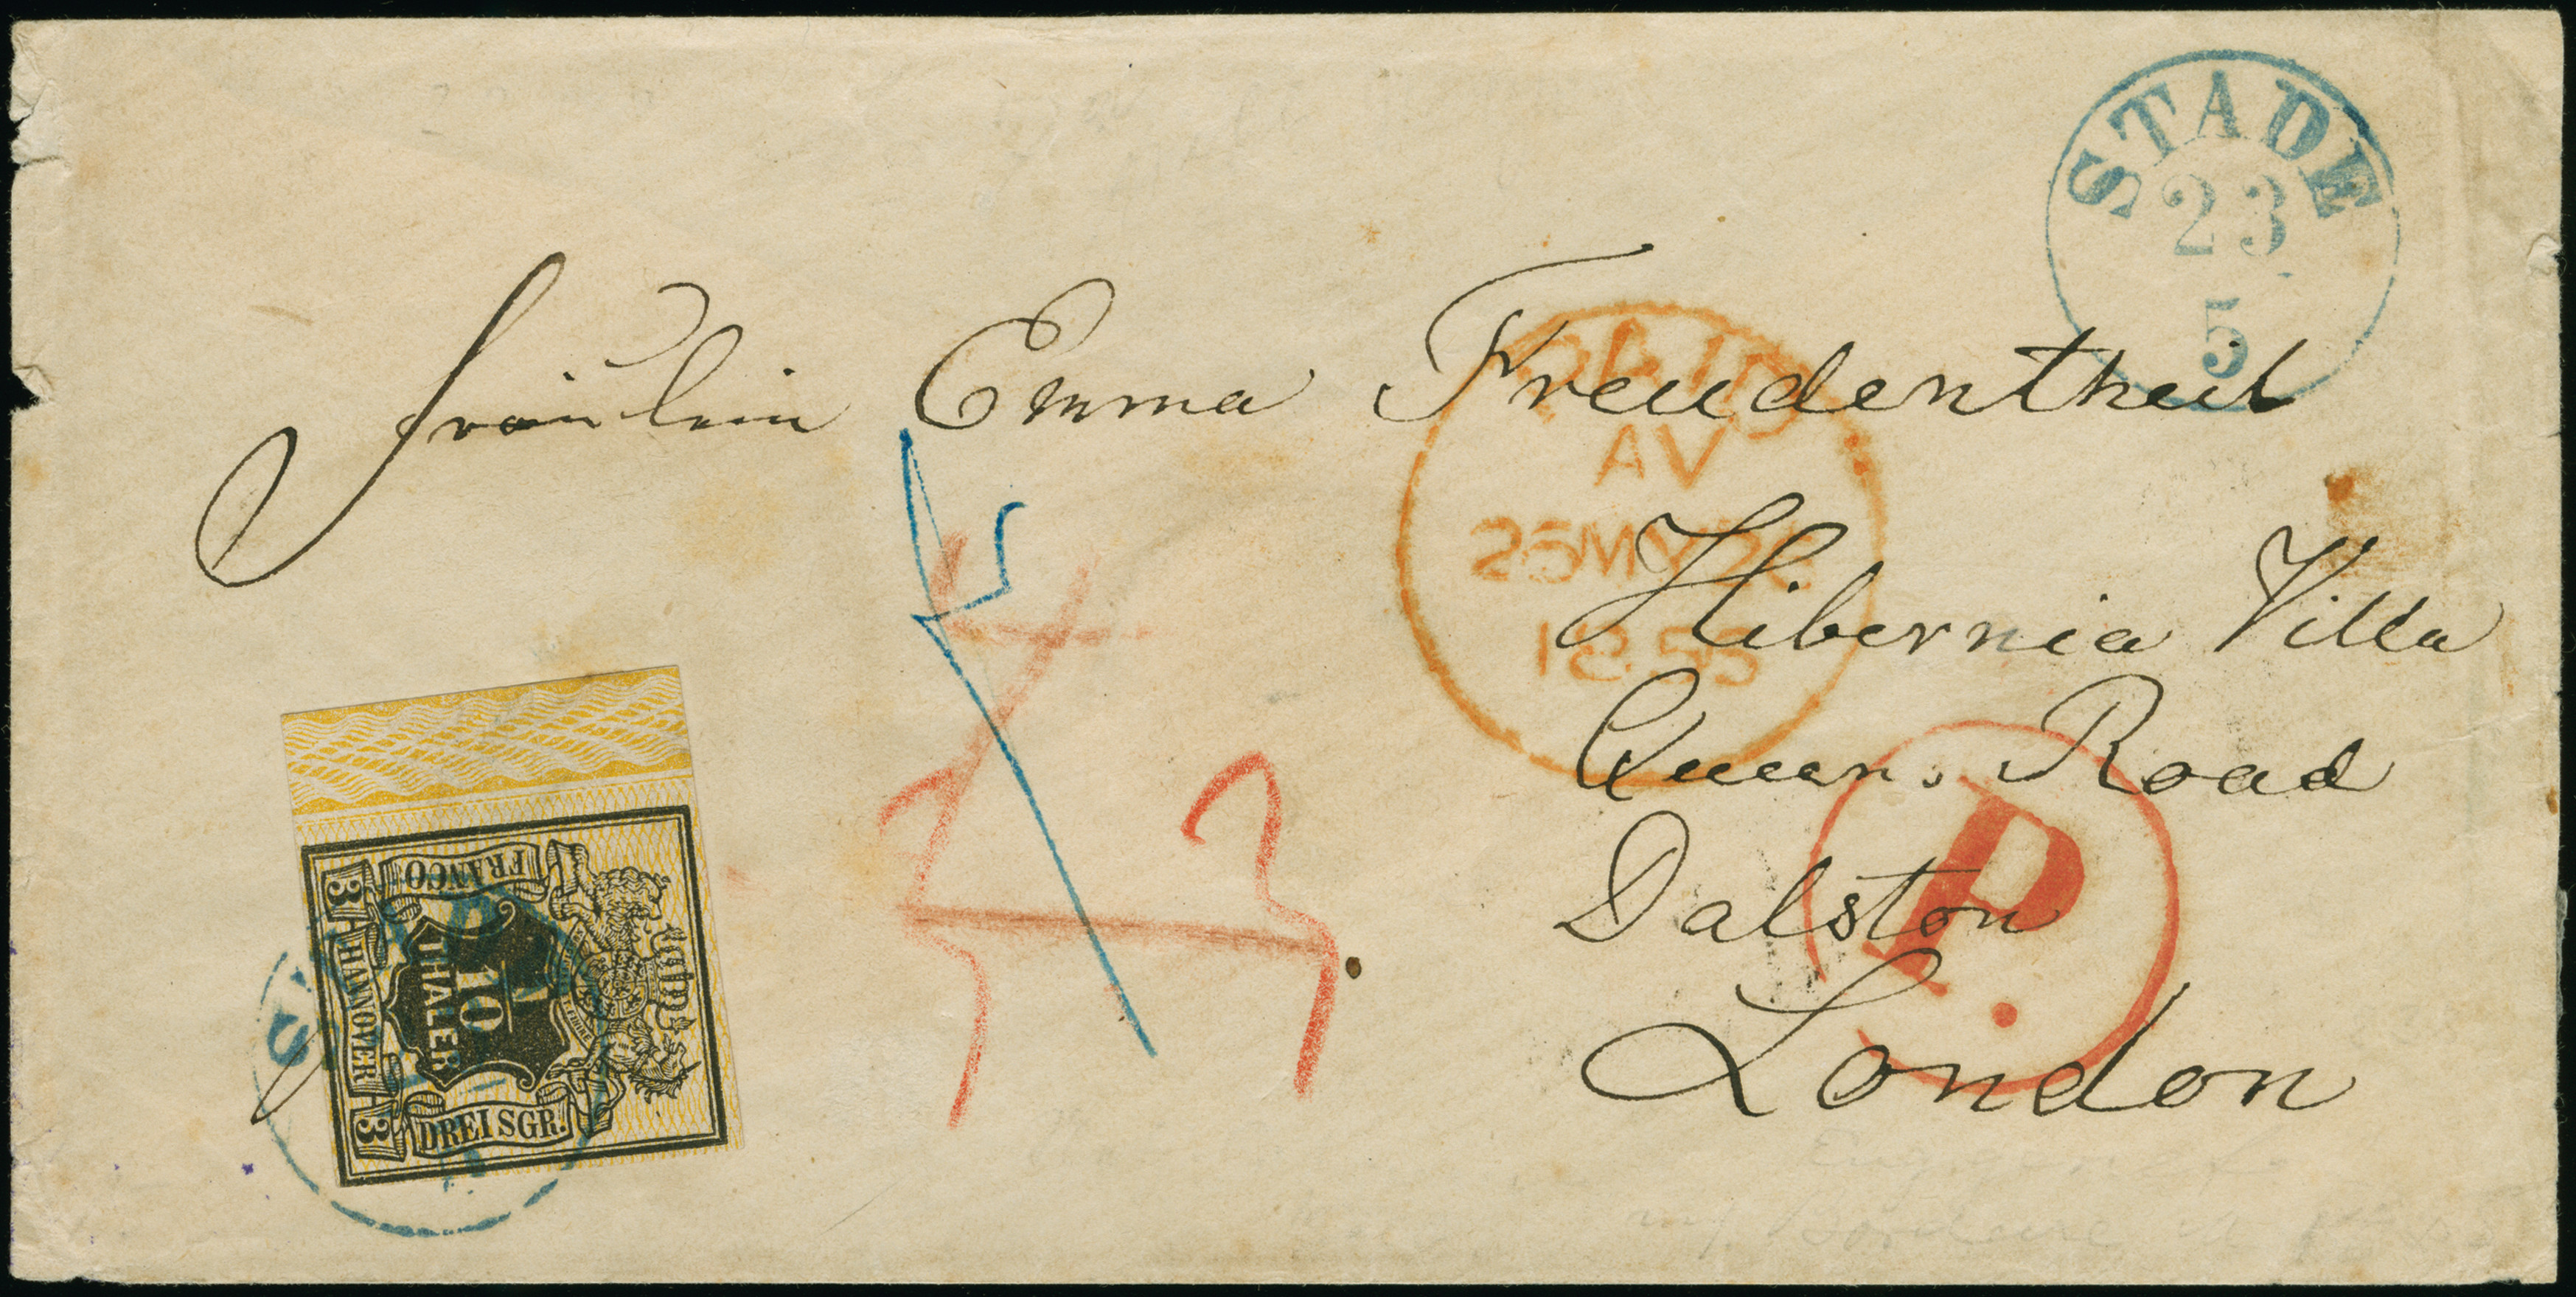 STADE
23
5
Fräulein Emma Freudentheil
PAID
AV
25MY25
1855
Hibernia Villa
Queens Road
Dalston
London
P.
FRANCO
3 HANNOVER 3
1/10
THALER
DREI SGR.
3